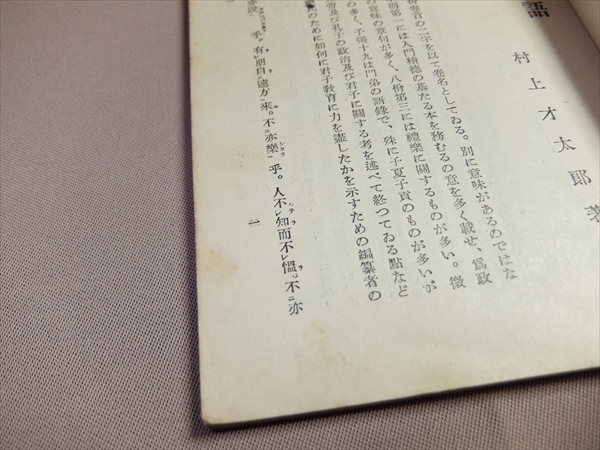 語
村上才太郎著
巻首の二字を以て巻名としてゐる。別に意味があるのではな
而第一には入門積徳の基たる本を務むるの意を多く載せ、爲政
の意味の章句が多く、八佾第三には禮樂に關するものが多い。微
の多く、子張十九は門弟の語錄で、殊に子夏子貢のものが多いが
帝及び孔子の政治及び君子に關する考を述べて終つてゐる點など
のために如何に君子敎育に力を盡したかを示すための編纂者の
乎。有レ朋自二遠方一來。不二亦樂一乎。人不レ知而不レ慍。不二亦
一